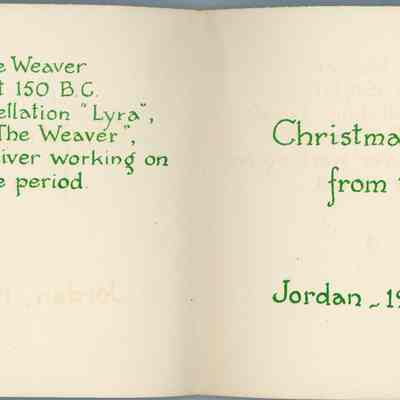 e Weaver
t 150 B.C.
ellation "Lyra",
The Weaver",
iver working on
e period.
Christma
from
Jordan ~ 19